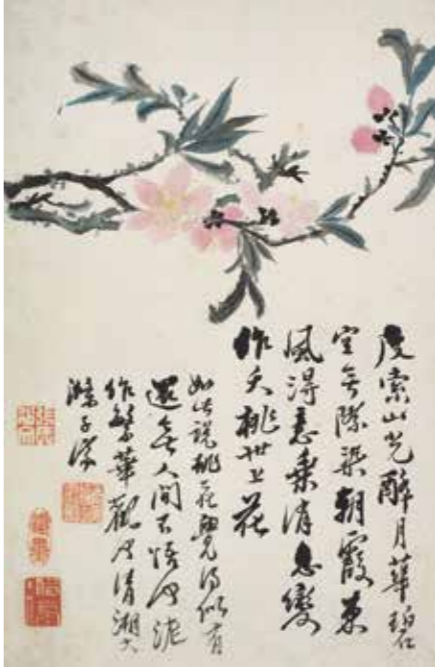 度索山光醉月華碧
空無際染朝霞東
風得意乘消息變
作夭桃世上花
如此說桃花覺得似有
還無人間不悟泥
作繁華觀也清湘大
滌子濟